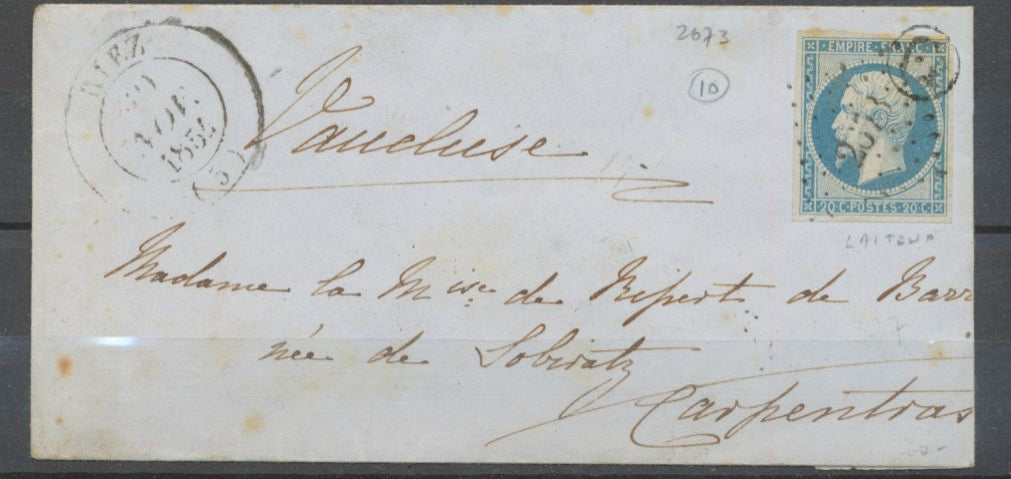 RIEZ
NOV.
1854
(5)
2673
10
EMPIRE FRANC
20·C·POSTES·20·C
LAITEUX
Vaucluse
Madame la Mise de Ripert de Barr
née de Sobiratz
Carpentras